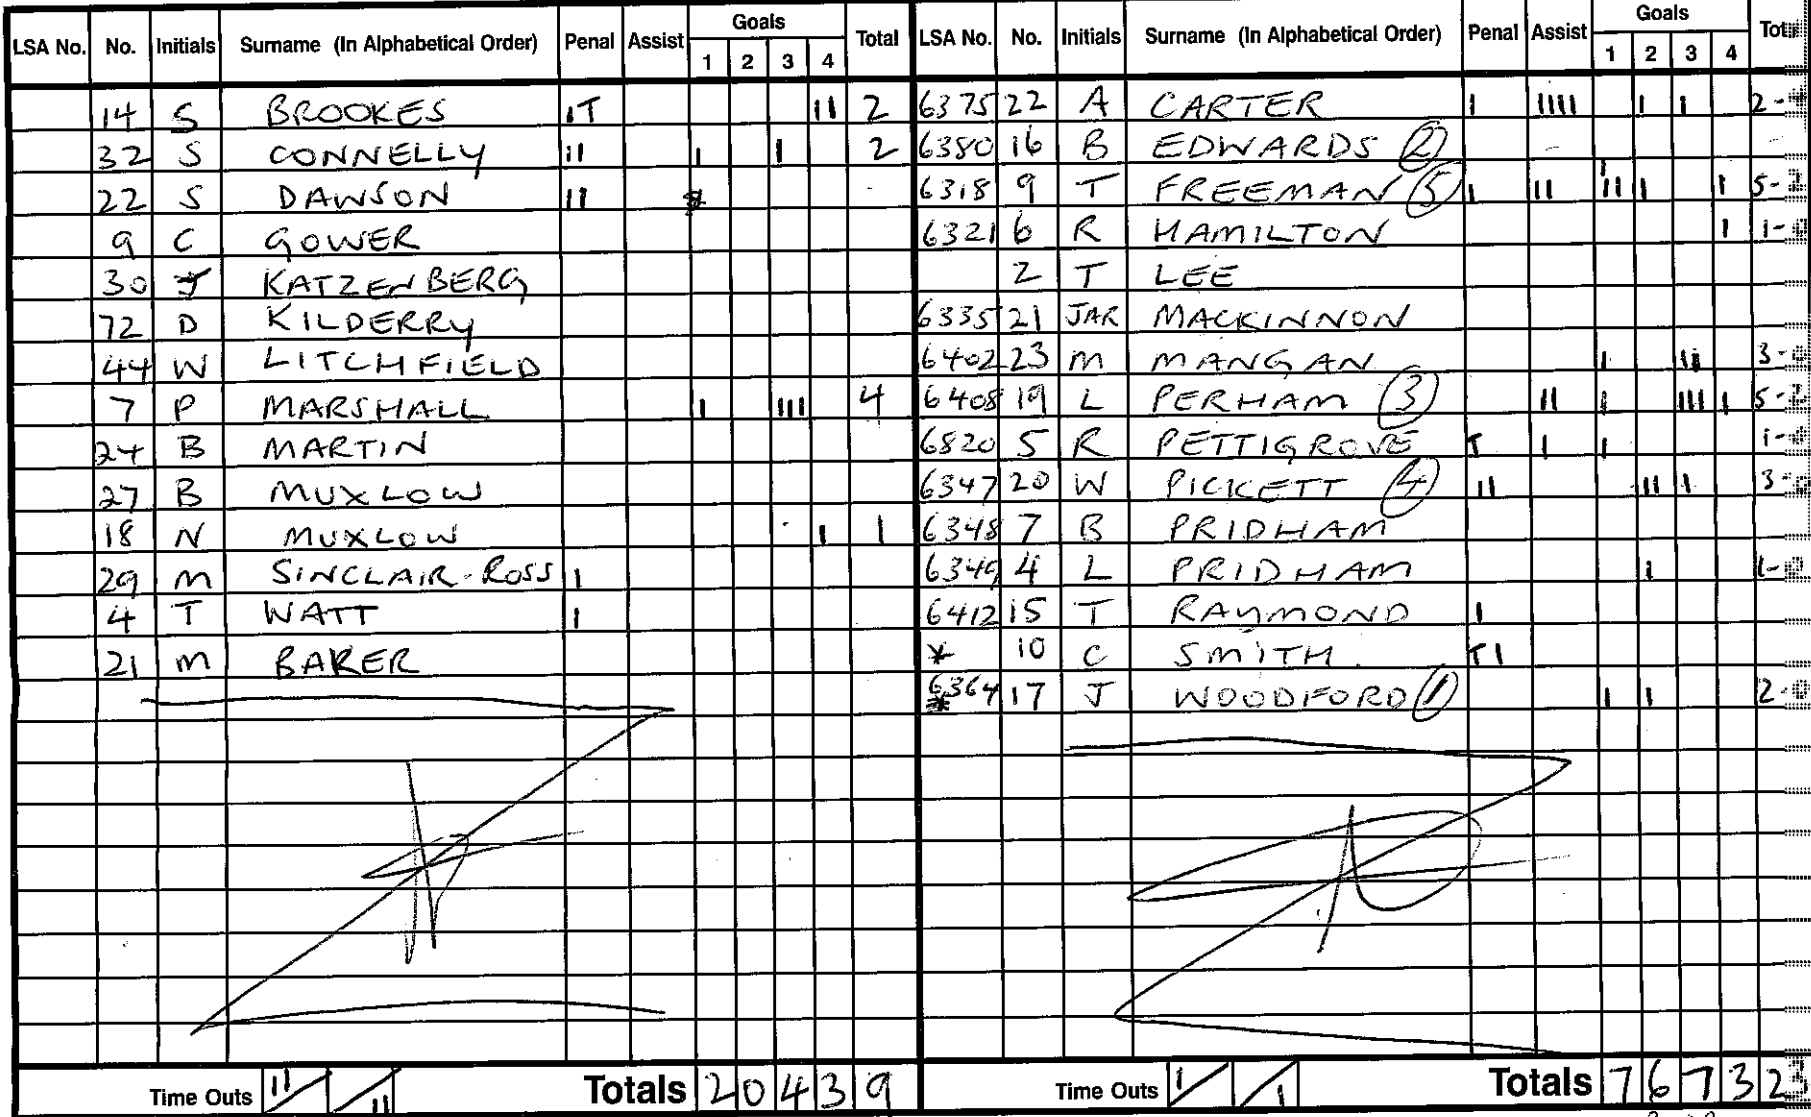 LSA No. No. Initials Surname (In Alphabetical Order) Penal Assist Goals 1 2 3 4 Total
14 S BROOKES IT II 2
32 S CONNELLY II I I 2
22 S DAWSON II
9 C GOWER
30 J KATZENBERG
72 D KILDERRY
44 W LITCHFIELD
7 P MARSHALL I III 4
24 B MARTIN
27 B MUXLOW
18 N MUXLOW I 1
29 M SINCLAIR-ROSS I
4 T WATT I
21 M BAKER
Time Outs II II Totals 2 0 4 3 9
LSA No. No. Initials Surname (In Alphabetical Order) Penal Assist Goals 1 2 3 4
6375 22 A CARTER I IIII I I 2-
6380 16 B EDWARDS 2
6318 9 T FREEMAN 5 I II III I I 5-
6321 6 R HAMILTON I 1-
2 T LEE
6335 21 JAR MACKINNON
6402 23 M MANGAN I II 3-
6408 19 L PERHAM 3 II I III I 5-
6820 5 R PETTIGROVE T I I 1-
6347 20 W PICKETT 4 II II I 3-
6348 7 B PRIDHAM
6349 4 L PRIDHAM I 1-
6412 15 T RAYMOND I
* 10 C SMITH TI
6364 17 J WOODFORD 1 I I 2-
Time Outs I I Totals 7 6 7 3 23